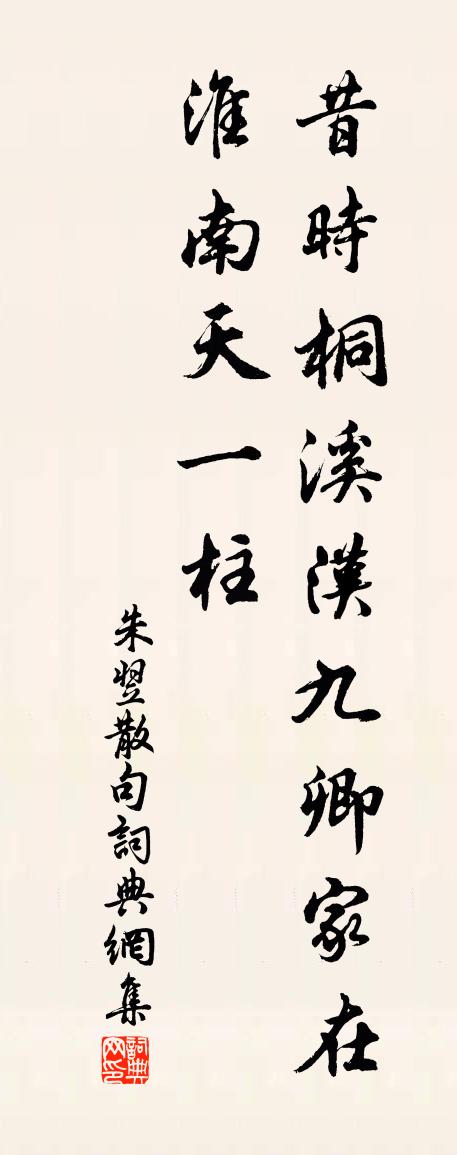 昔時桐溪漢九卿家在
淮南天一柱
朱翌散句詞典網集
詞典网印